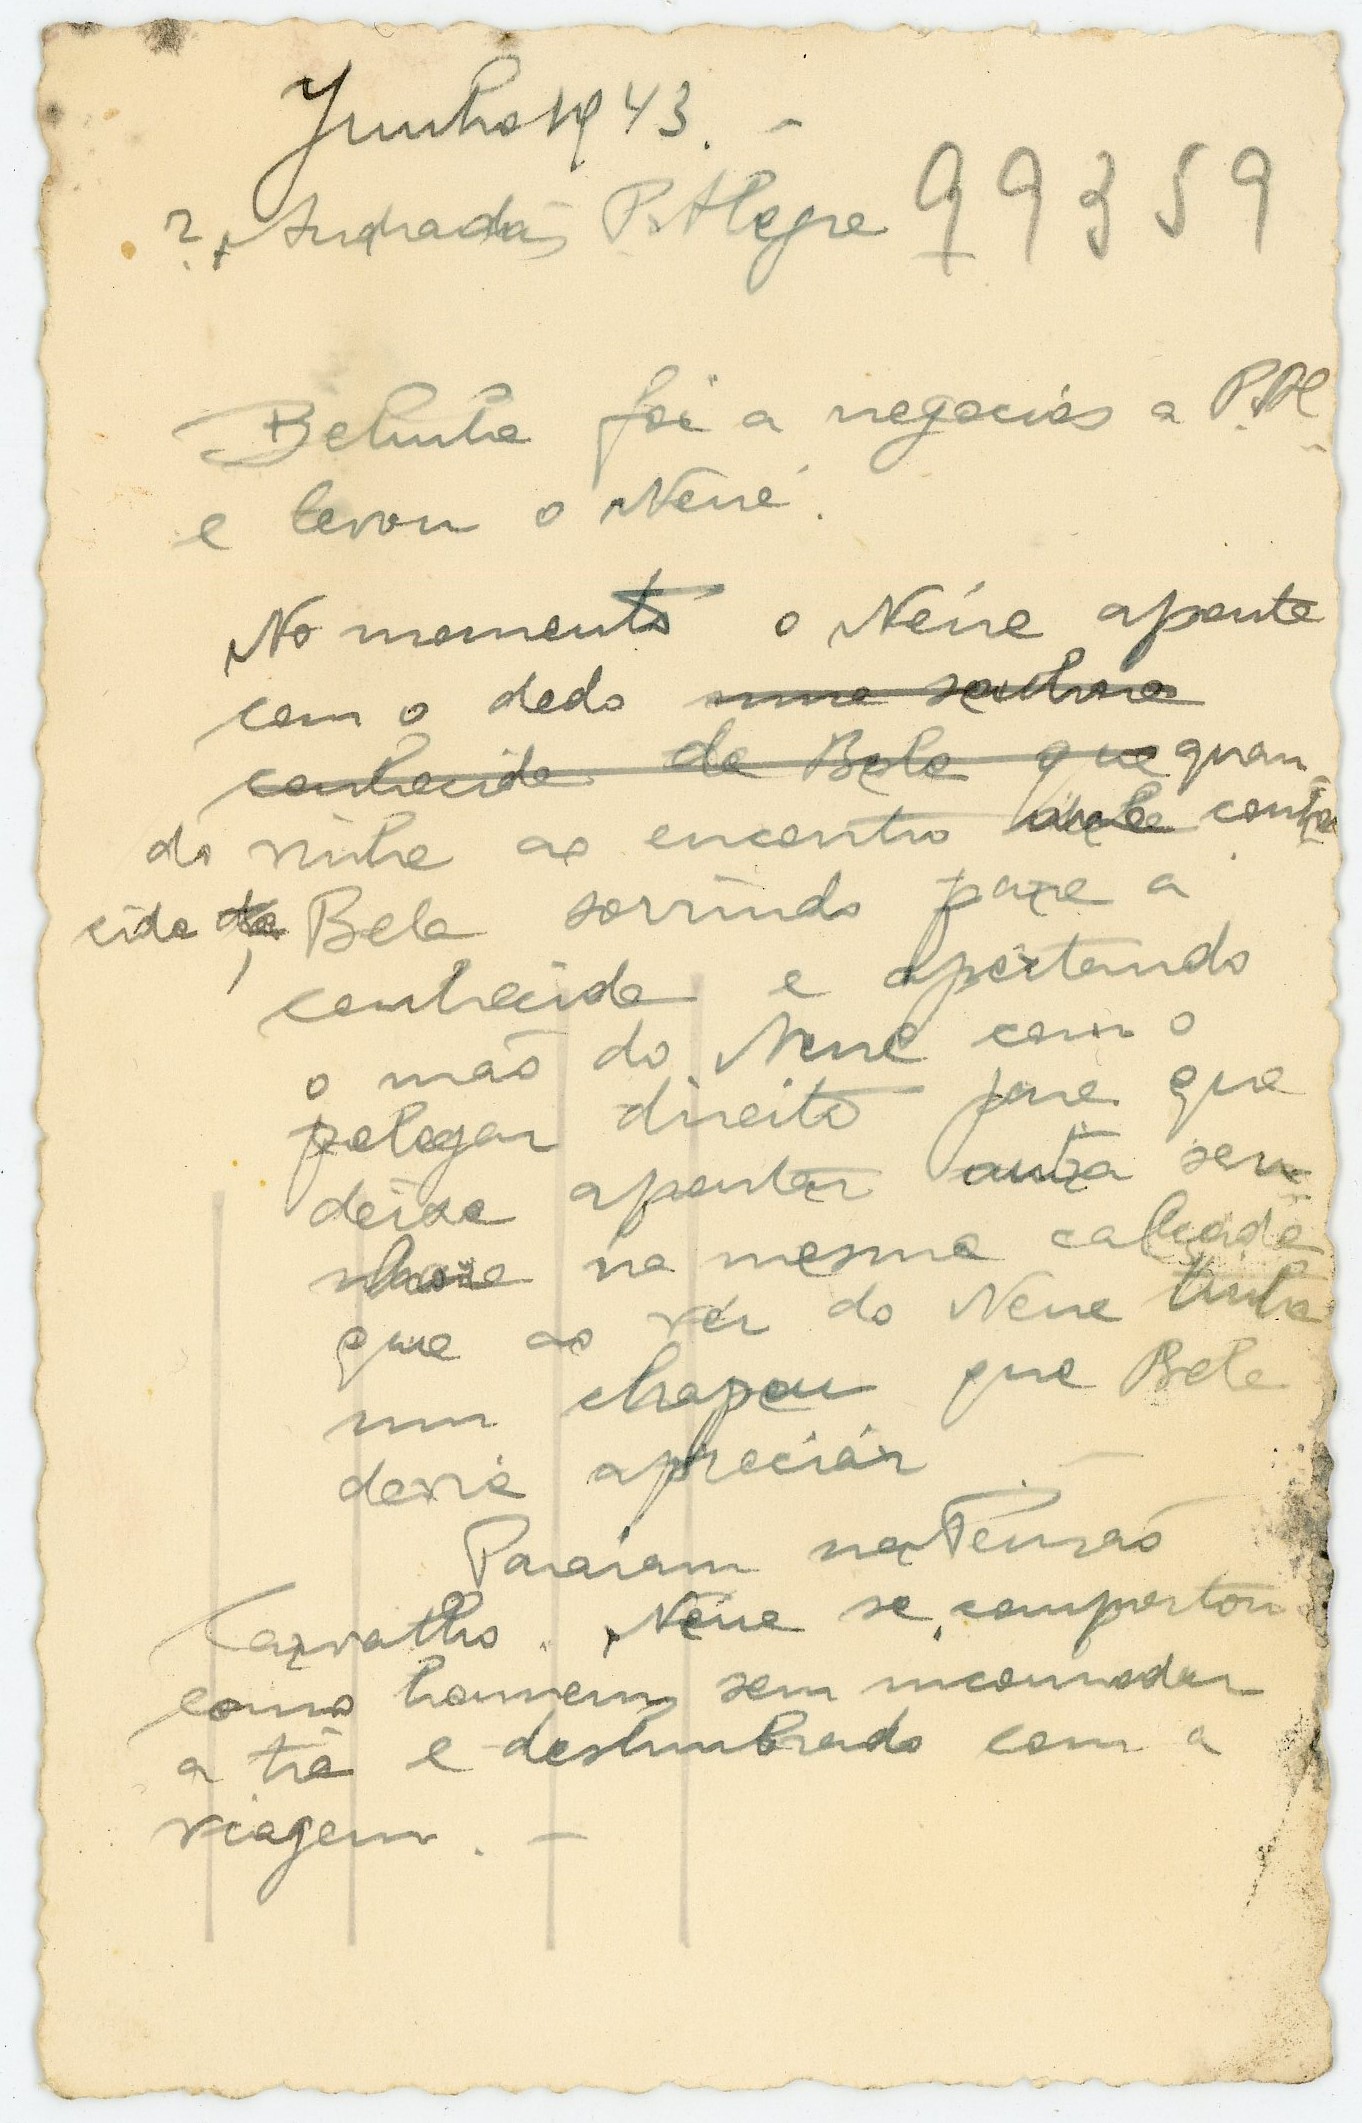 Junho 1943. -
R. Andradas P. Alegre 99359
Belinha foi a negocios a P. Al
e levou o Nenê.
No momento o Nêne aponta
com o dedo uma senhora
conhecida da Bela que quan
do vinha ao encontro conhe
cida da Bela sorrindo para a
conhecida e apertando
a mão do Nenê com o
polegar direito para que
deixe apontar outra sen
hora na mesma calçada
que ao ver do Nene tinha
um chapeu que Bela
devia apreciár -
Pararam na Pensão
Carvalho. Nêne se comportou
como homem, sem incomodar
a tia e deslumbrado com a
viagem. -